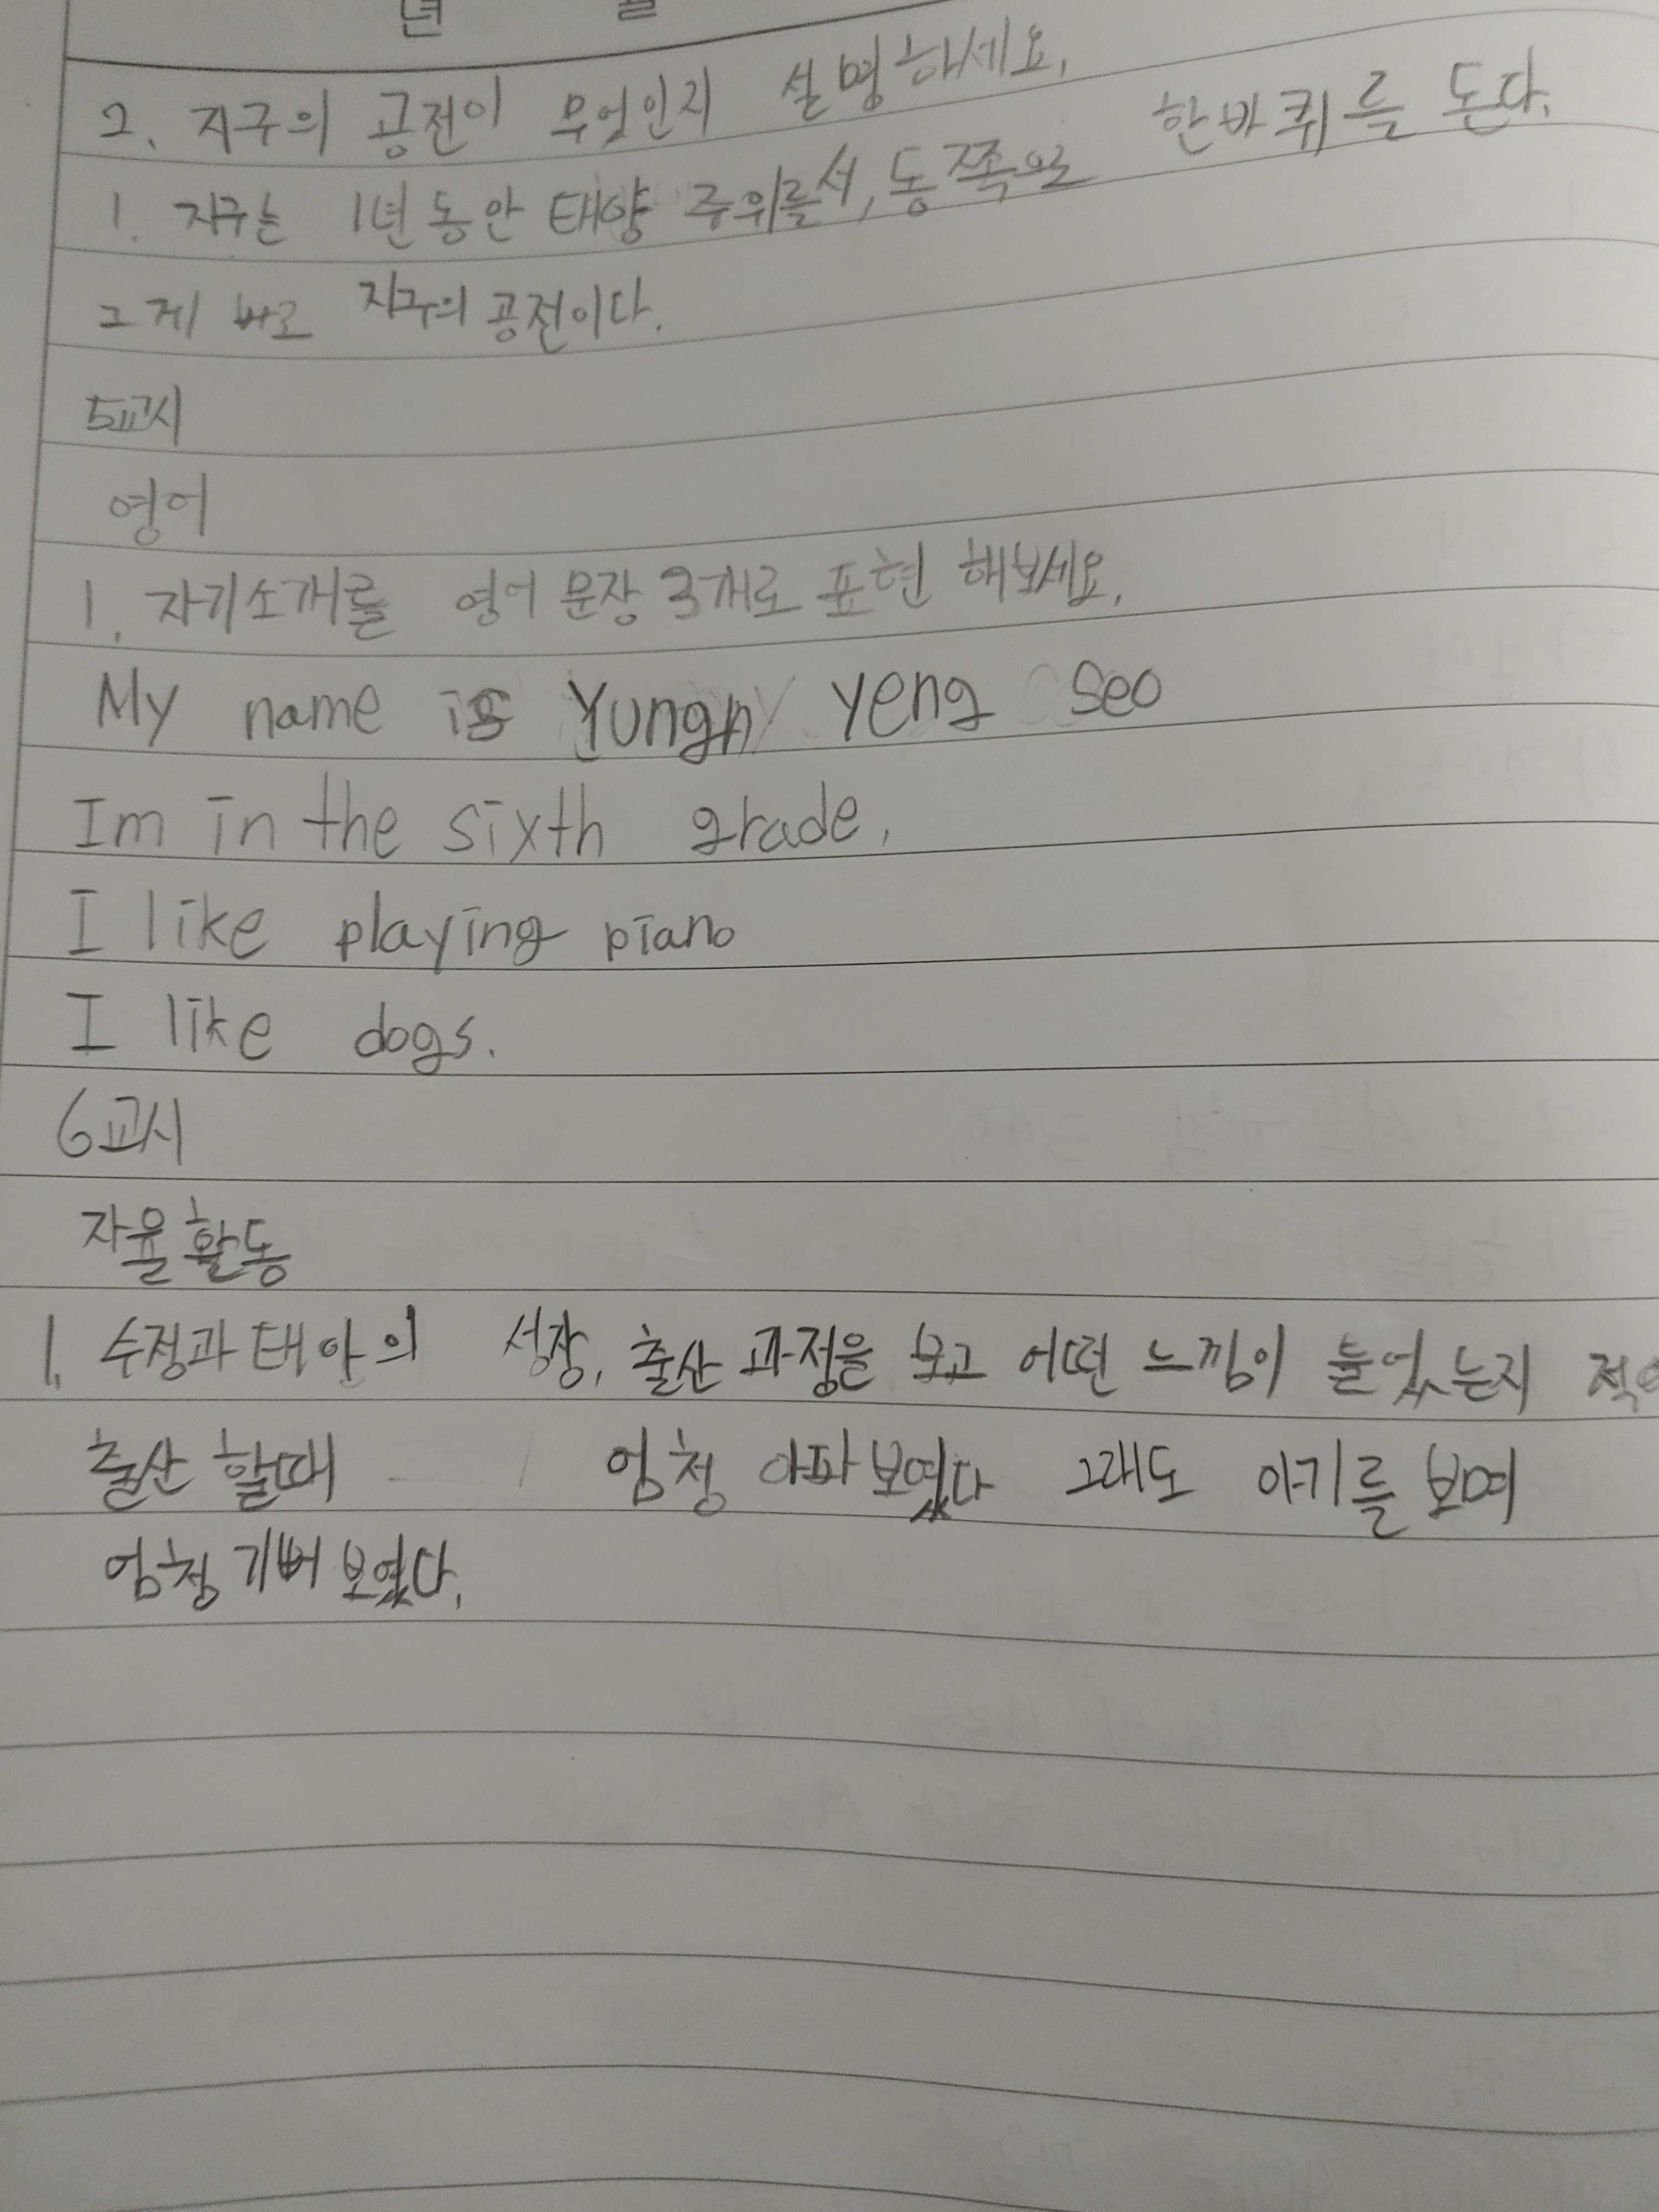 년 월
2. 지구의 공전이 무엇인지 설명하세요.
1. 지구는 1년 동안 태양 주위를 서, 동쪽으로 한바퀴를 돈다.
그게 바로 지구의 공전이다.
5교시
영어
1. 자기소개를 영어 문장 3개로 표현 해보세요.
My name is Yungn yeng seo
Im in the sixth grade.
I like playing piano
I like dogs.
6교시
자율활동
1. 수정과 태아의 성장, 출산 과정을 보고 어떤 느낌이 들었는지 적어
출산 할때 엄청 아파 보였다 그래도 아기를 보며
엄청 기뻐 보였다.